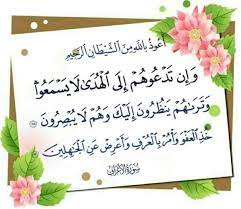 أعوذ بالله من الشيطان الرجيم
وَإِن تَدْعُوهُمْ إِلَى الْهُدَىٰ لَا يَسْمَعُوا
وَتَرَىٰهُمْ يَنظُرُونَ إِلَيْكَ وَهُمْ لَا يُبْصِرُونَ
خُذِ الْعَفْوَ وَأْمُرْ بِالْعُرْفِ وَأَعْرِضْ عَنِ الْجَٰهِلِينَ
سورة الأعراف